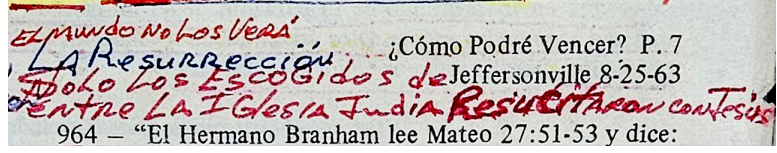 EL MUNDO NO LOS VERÁ
LA Resurrección
¿Cómo Podré Vencer? P. 7
Solo Los Escogidos de
Jeffersonville 8-25-63
entre LA IGlesia Judia Resucitaron con Jesús
964 – “El Hermano Branham lee Mateo 27:51-53 y dice: